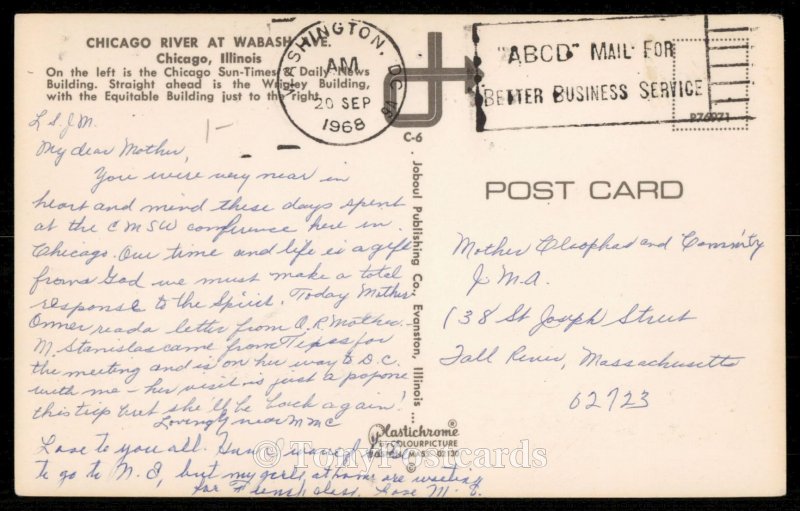 CHICAGO RIVER AT WABASH AVE.
Chicago, Illinois
On the left is the Chicago Sun-Times & Daily News
Building. Straight ahead is the Wrigley Building,
with the Equitable Building just to the right.
WASHINGTON, DC
AM
20 SEP
1968
"ABCD" MAIL FOR
BETTER BUSINESS SERVICE
P76971
C-6
L S J M.
My dear Mother,
You were very near in
heart and mind these days spent
at the CMSW conference here in
Chicago. Our time and life is a gift
from God we must make a total
response to the Spirit. Today Mother
read a letter from Mother.
M. Stanislas came from for
the meeting and is on her way to D.C.
with me - her visit is just a
this trip but she'll be back again!
Lovingly near MMC
Love to you all. wanted
to go to N.E, but my girls at home are waiting
for class. Love M.
Joboul Publishing Co., Evanston, Illinois ...
Plastichrome
COLOURPICTURE
BOSTON, MASS. 02130
POST CARD
Mother Cleophas and Comm'ty
J.M.A.
138 St Joseph Street
Fall River, Massachusetts
02723
© TonyPostcards